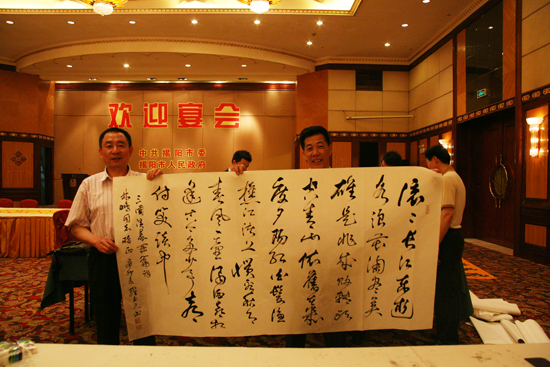 欢迎宴会
中共揭阳市委
揭阳市人民政府
滚々长江东逝
水浪花淘尽英
雄是非成败转头
空青山依旧在几
度夕阳红白发渔
樵江渚上惯看秋月
春风一壶浊酒喜相
逢古今多少事都
付笑谈中